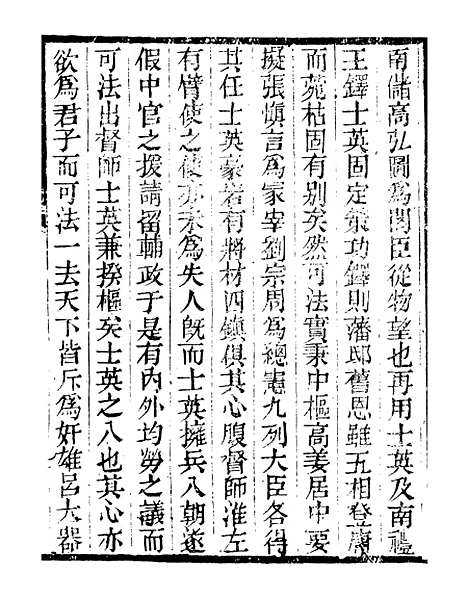 南儲高弘圖爲閣臣從物望也再用士英及南禮
王鐸士英固定策功鐸則藩邸舊恩雖五相登庸
而菀枯固有别矣然可法實秉中樞高姜居中要
擬張慎言爲冢宰劉宗周爲總憲九列大臣各得
其任士英豪若有將材四鎮俱其心腹督師淮左
有臂使之使亦未爲失人旣而士英擁兵入朝遂
假中官之援請留輔政于是有内外均勞之議而
可法出督師士英兼揆樞矣士英之入也其心亦
欲爲君子而可法一去天下皆斥爲奸雄呂大器